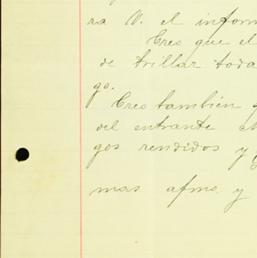 ra V. el inform
Cres que el
de trillar toda
go.
Cres también
del entrante
gos rendidos y
mas afmo. y